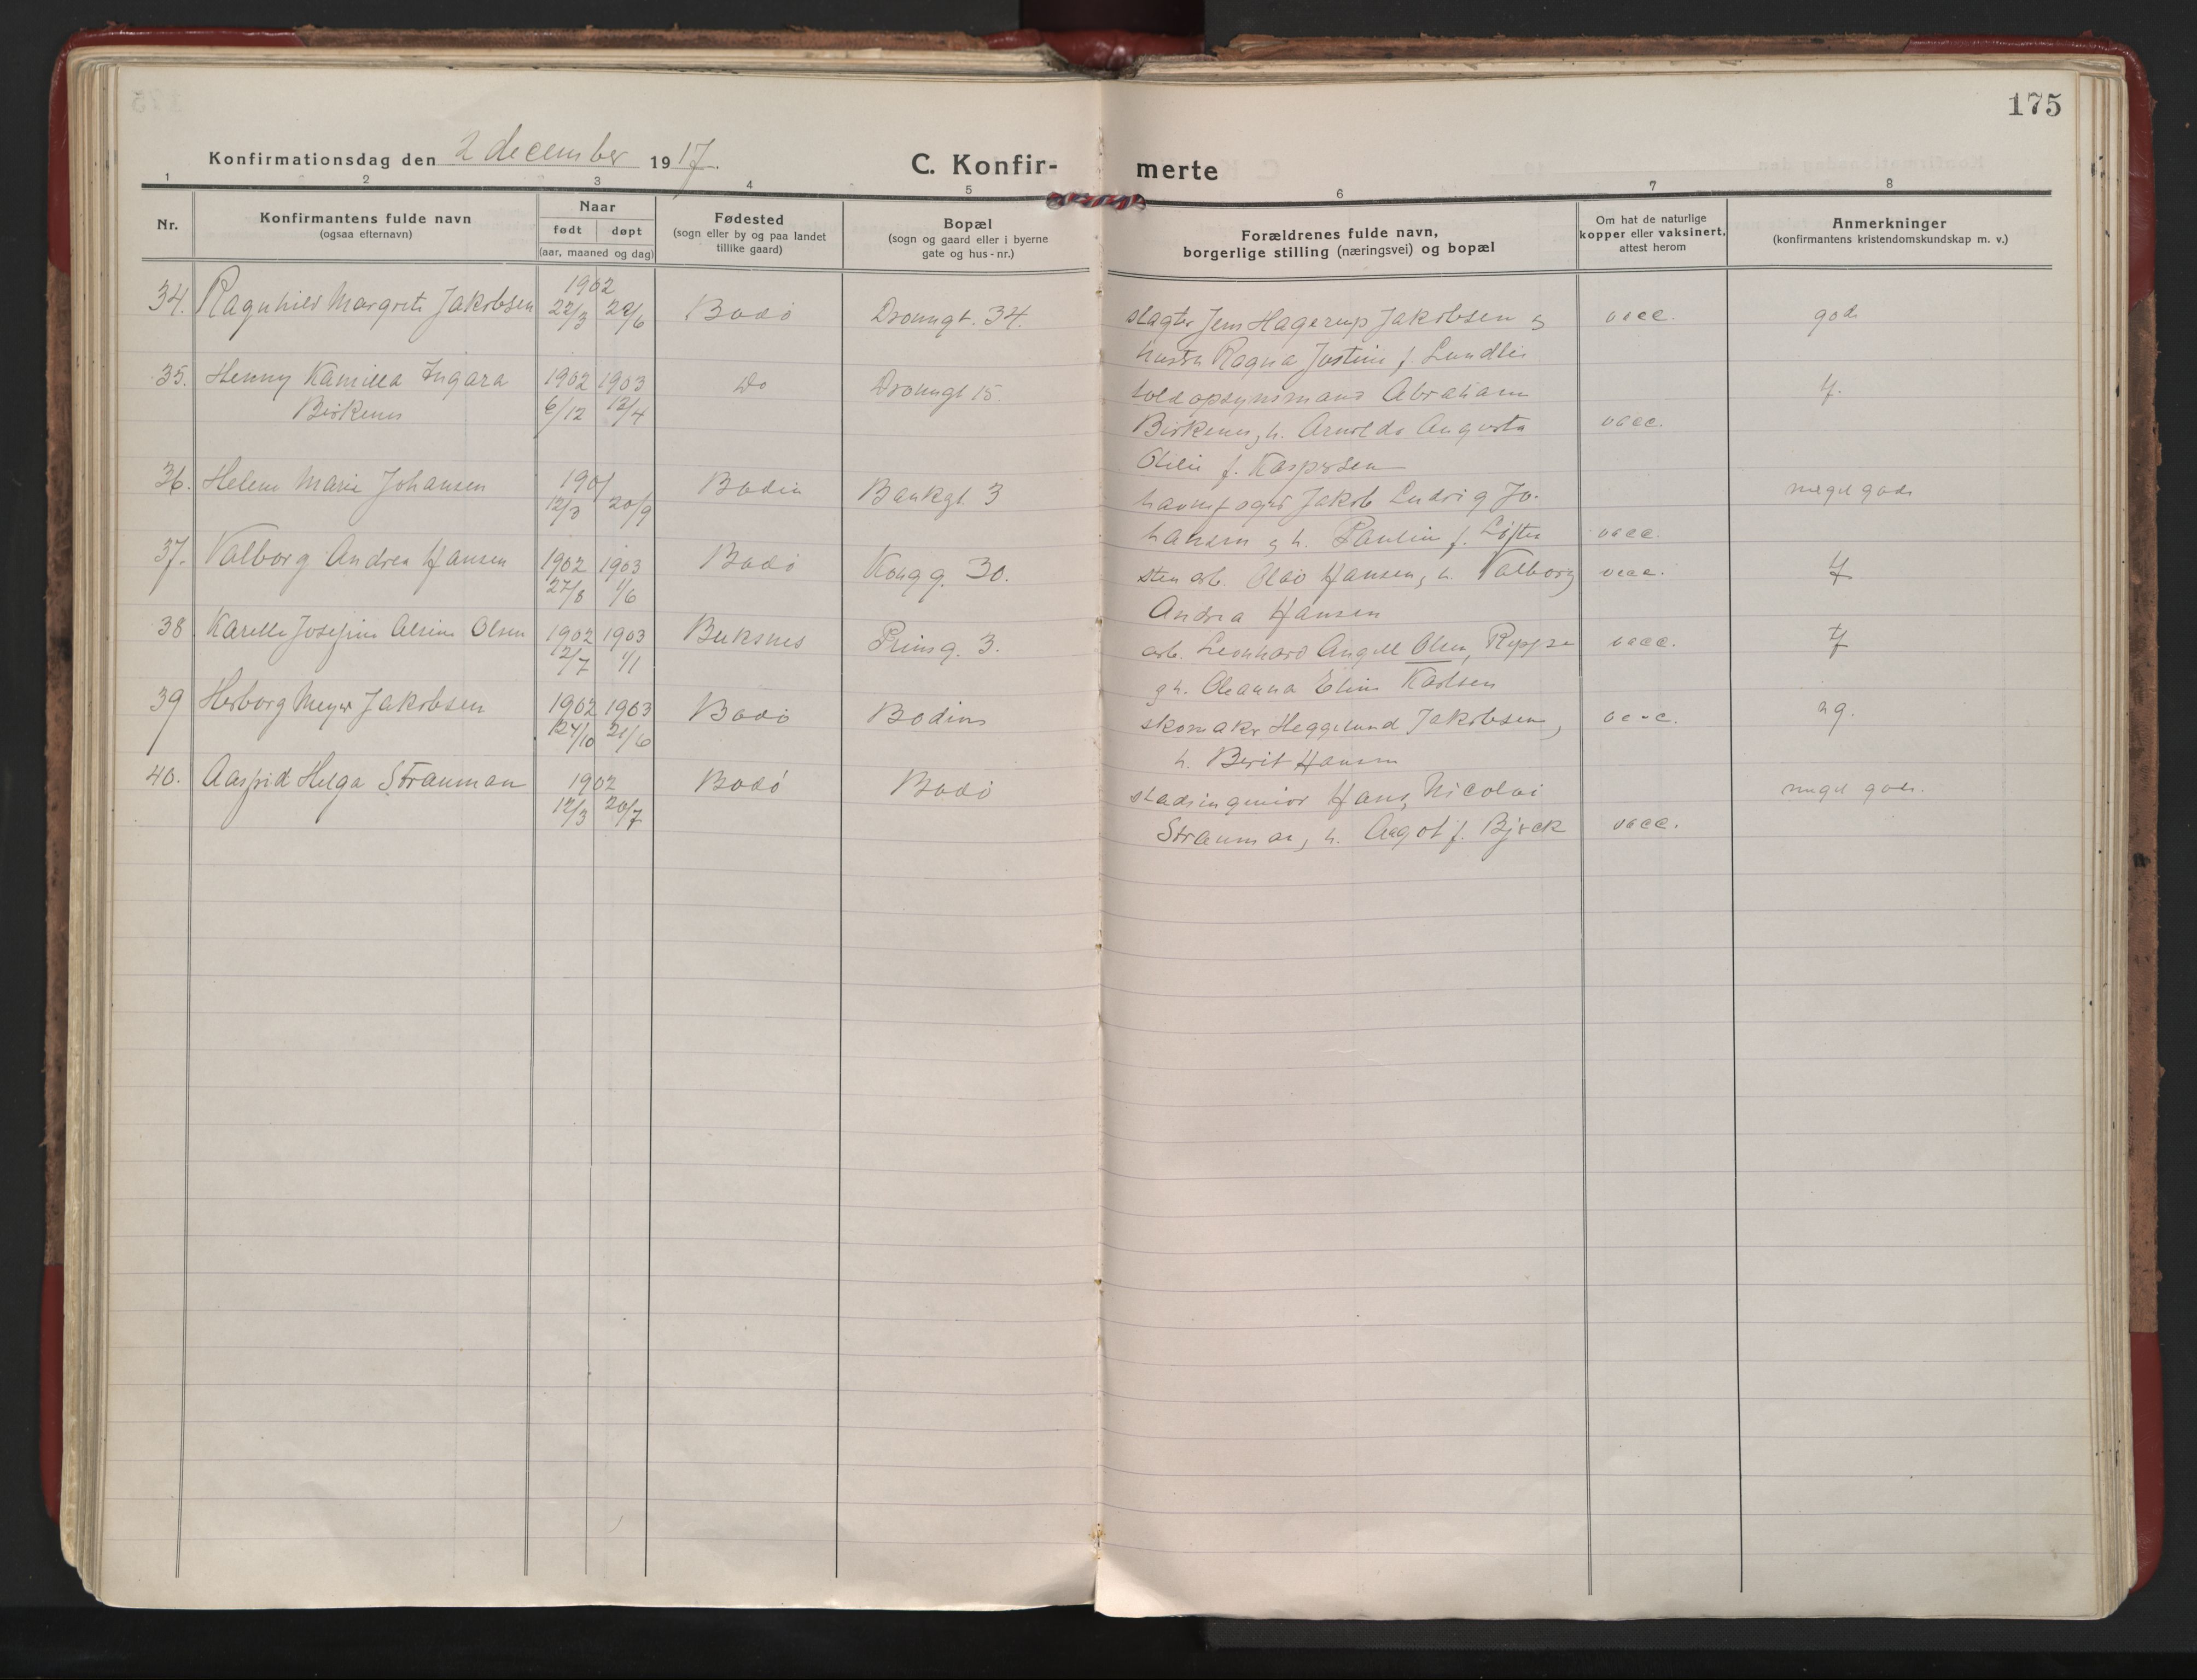 175
Konfirmationsdag den 2 december 1917.
C. Konfir-
merte
1 2 3 4 5 6 7 8
Nr.
Konfirmantens fulde navn
(ogsaa efternavn)
Naar
født døpt
(aar, maaned og dag)
Fødested
(sogn eller by og paa landet
tillike gaard)
Bopæl
(sogn og gaard eller i byerne
gate og hus-nr.)
Forældrenes fulde navn,
borgerlige stilling (næringsvei) og bopæl
Om hat de naturlige
kopper eller vaksinert,
attest herom
Anmerkninger
(konfirmantens kristendomskundskap m. v.)
1902
34. Ragnhild Margrete Jakobsen 22/3 29/6 Bodö Dronngt. 34. slagter Jens Hagerup Jakobsen g vacc. god
hustru Ragna Justine f. Lundli
35. Henny Kamilla Ingara 1902 1903 Do Dronngt 15. toldopsynsmand Abraham
Birkenes 6/12 12/4 Birkenes, h. Arnolda Augusta vacc.
Otilie f. Kaspersen
36. Helene Marie Johansen 1901 Bodin Bankgt. 3 havnefoged Jakob Ludvig Jo- meget god
12/8 20/9 hansen g h. Pauline f. vacc.
37. Valborg Andrea Hansen 1902 1903 Bodö Kongg. 30. sten arb. Olai Hansen, h. Valborg vacc.
27/8 1/6 Andrea Hansen
38 Josefine Olsen 1902 1903 Buksnes Prinsg. 3. arb. Leonhard Angell Olsen, vacc.
12/7 1/1 g h. Oleanna Eline Karlsen
39 Herborg Meyer Jakobsen 1902 1903 Bodö Bodin skomaker Heggelund Jakobsen, vacc. ng.
24/10 21/6 h. Berit Hansen
40. Aasfrid Helga Strauman 1902 Bodö Bodö stadsingeniör Hans Nicolai meget god.
12/3 20/7 Strauman, h. Aagot f. Bjerck vacc.